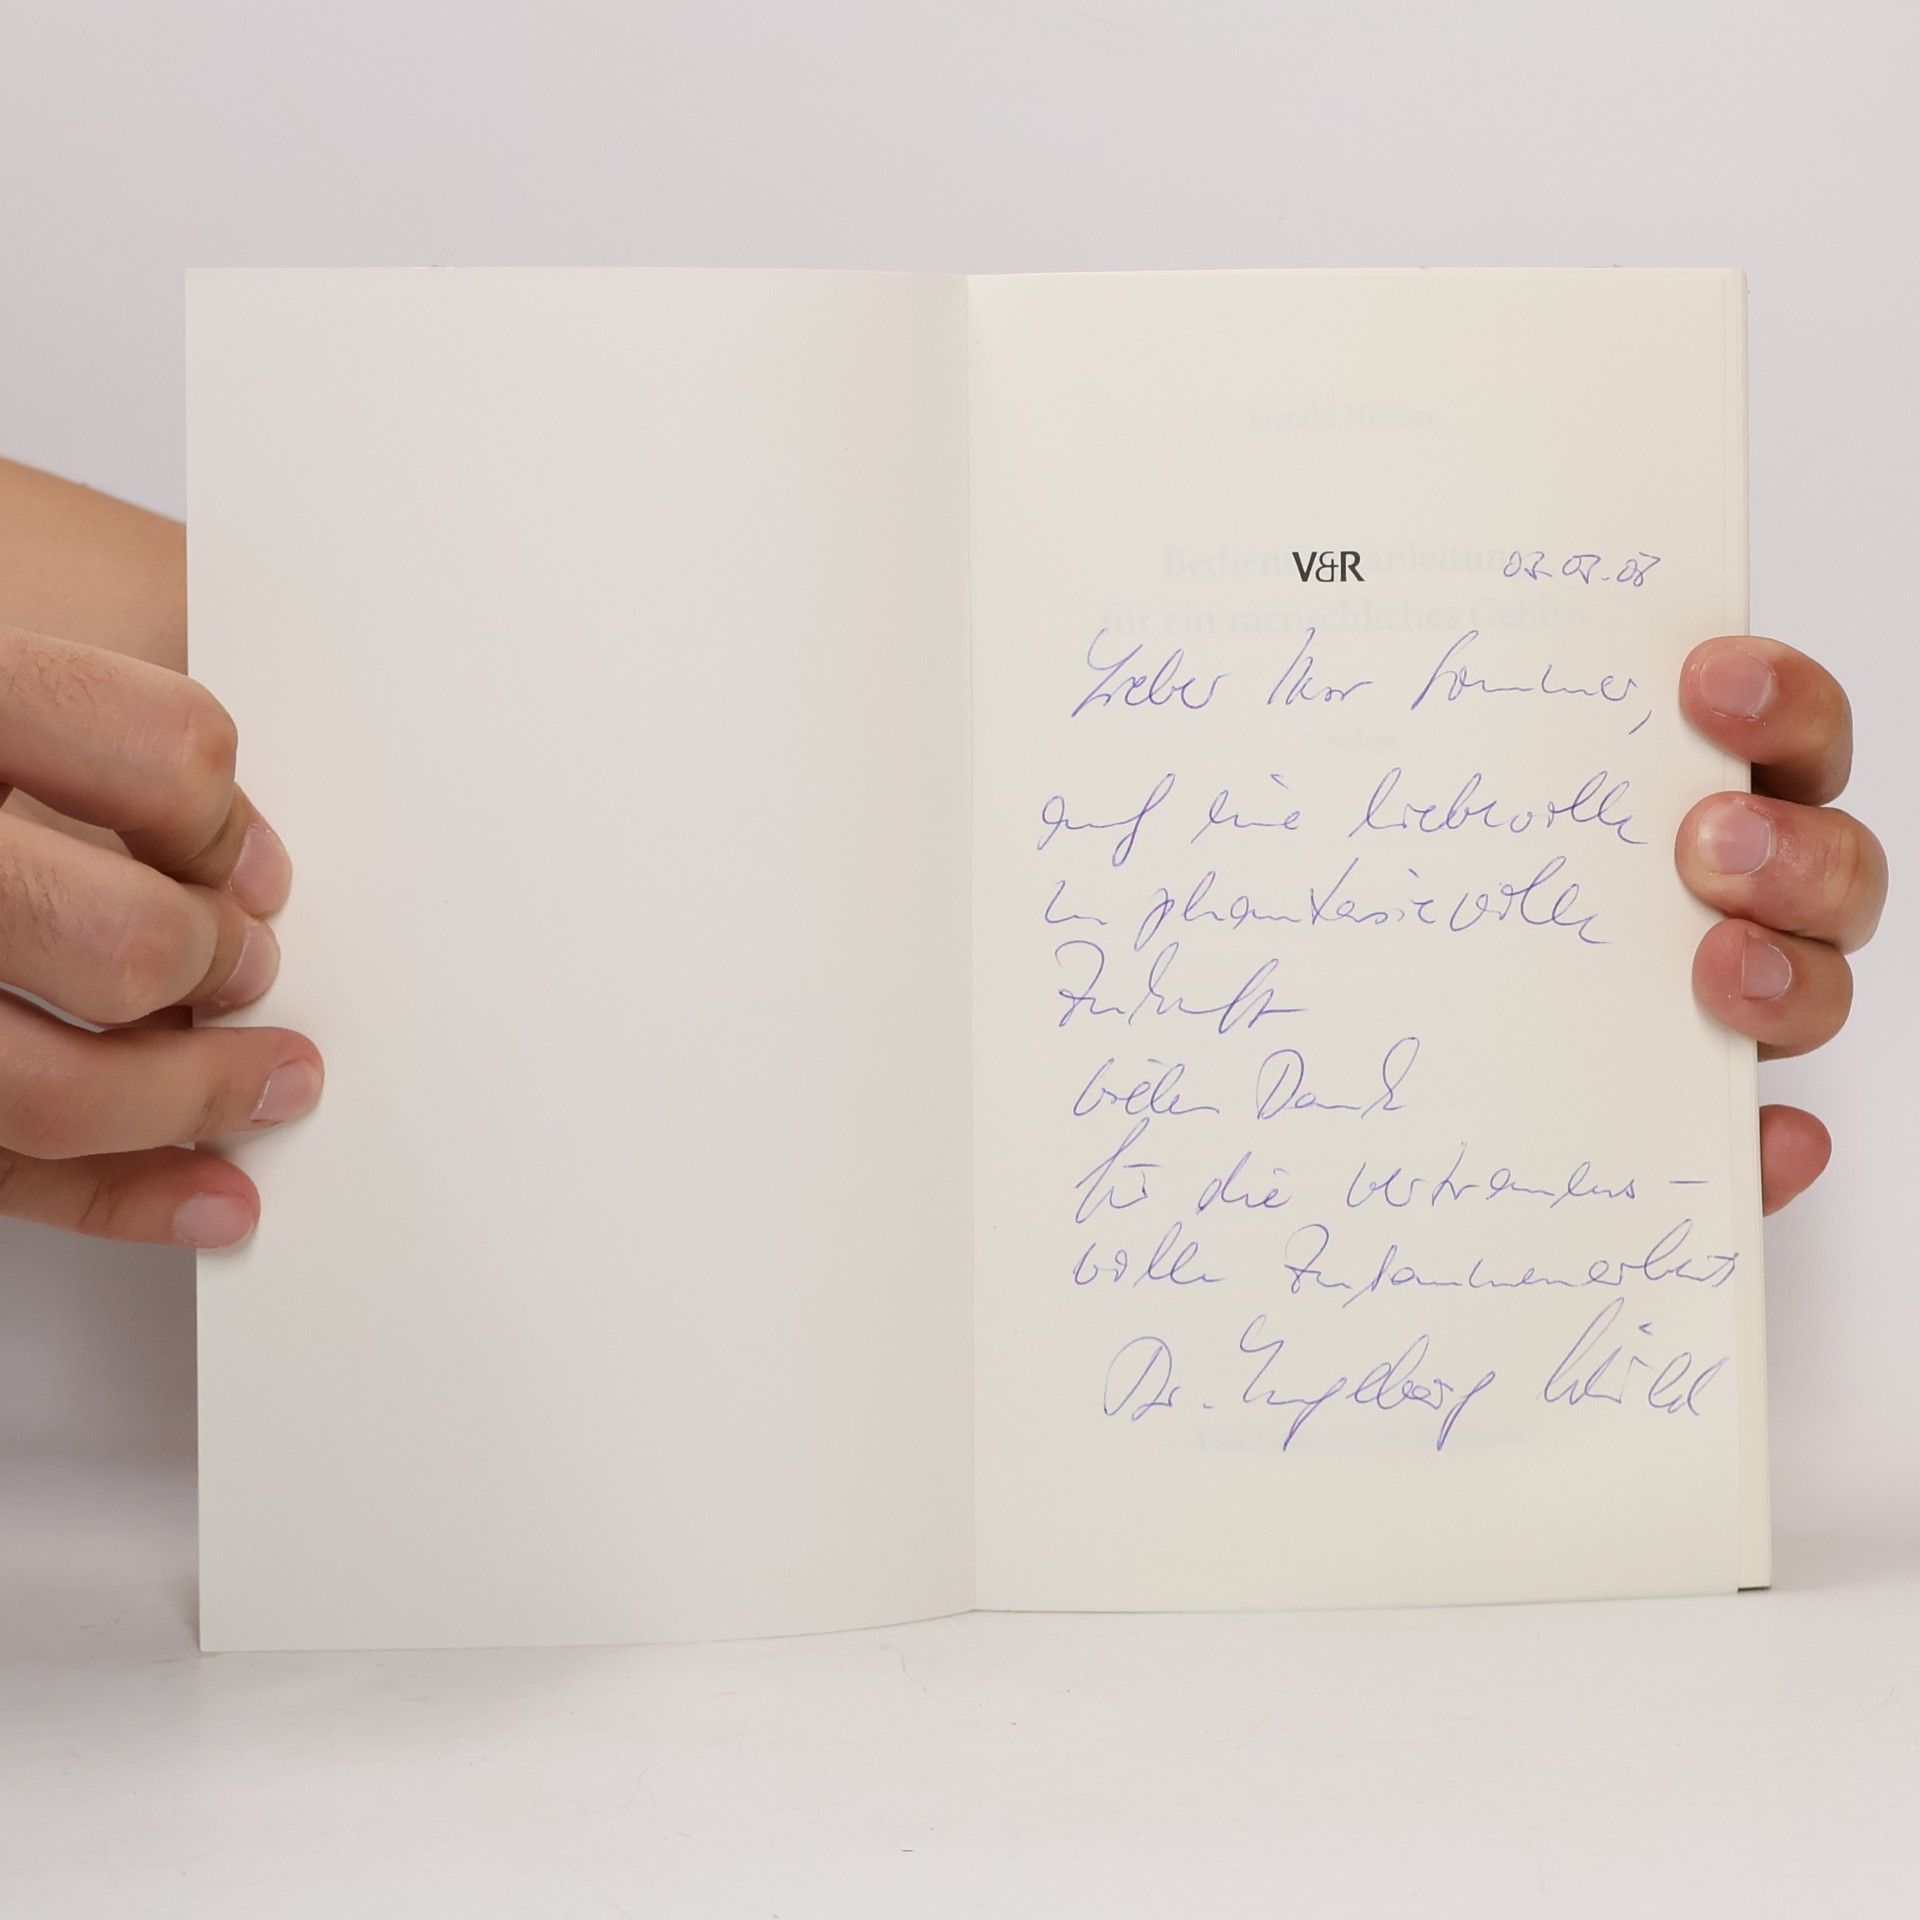 Gerald Hüther
Bedienungsanleitung
für ein menschliches Gehirn
V&R
Lieber Herr Sommer,
7. Auflage
auf eine liebevolle
u phantasievolle
Zukunft
vielen Dank
für die vertrauens-
volle Zusammenarbeit
Dr. Ingeborg
Vandenhoeck & Ruprecht